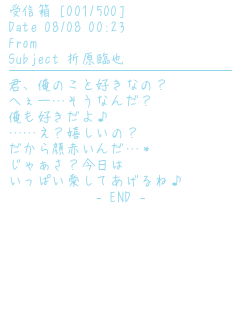 受信箱 [001/500]
Date 08/08 00:23
From
Subject 折原臨也
君、俺のこと好きなの?
へぇー…そうなんだ?
俺も好きだよ♪
……え?嬉しいの?
だから顔赤いんだ…*
じゃあさ?今日は
いっぱい愛してあげるね♪
- END -